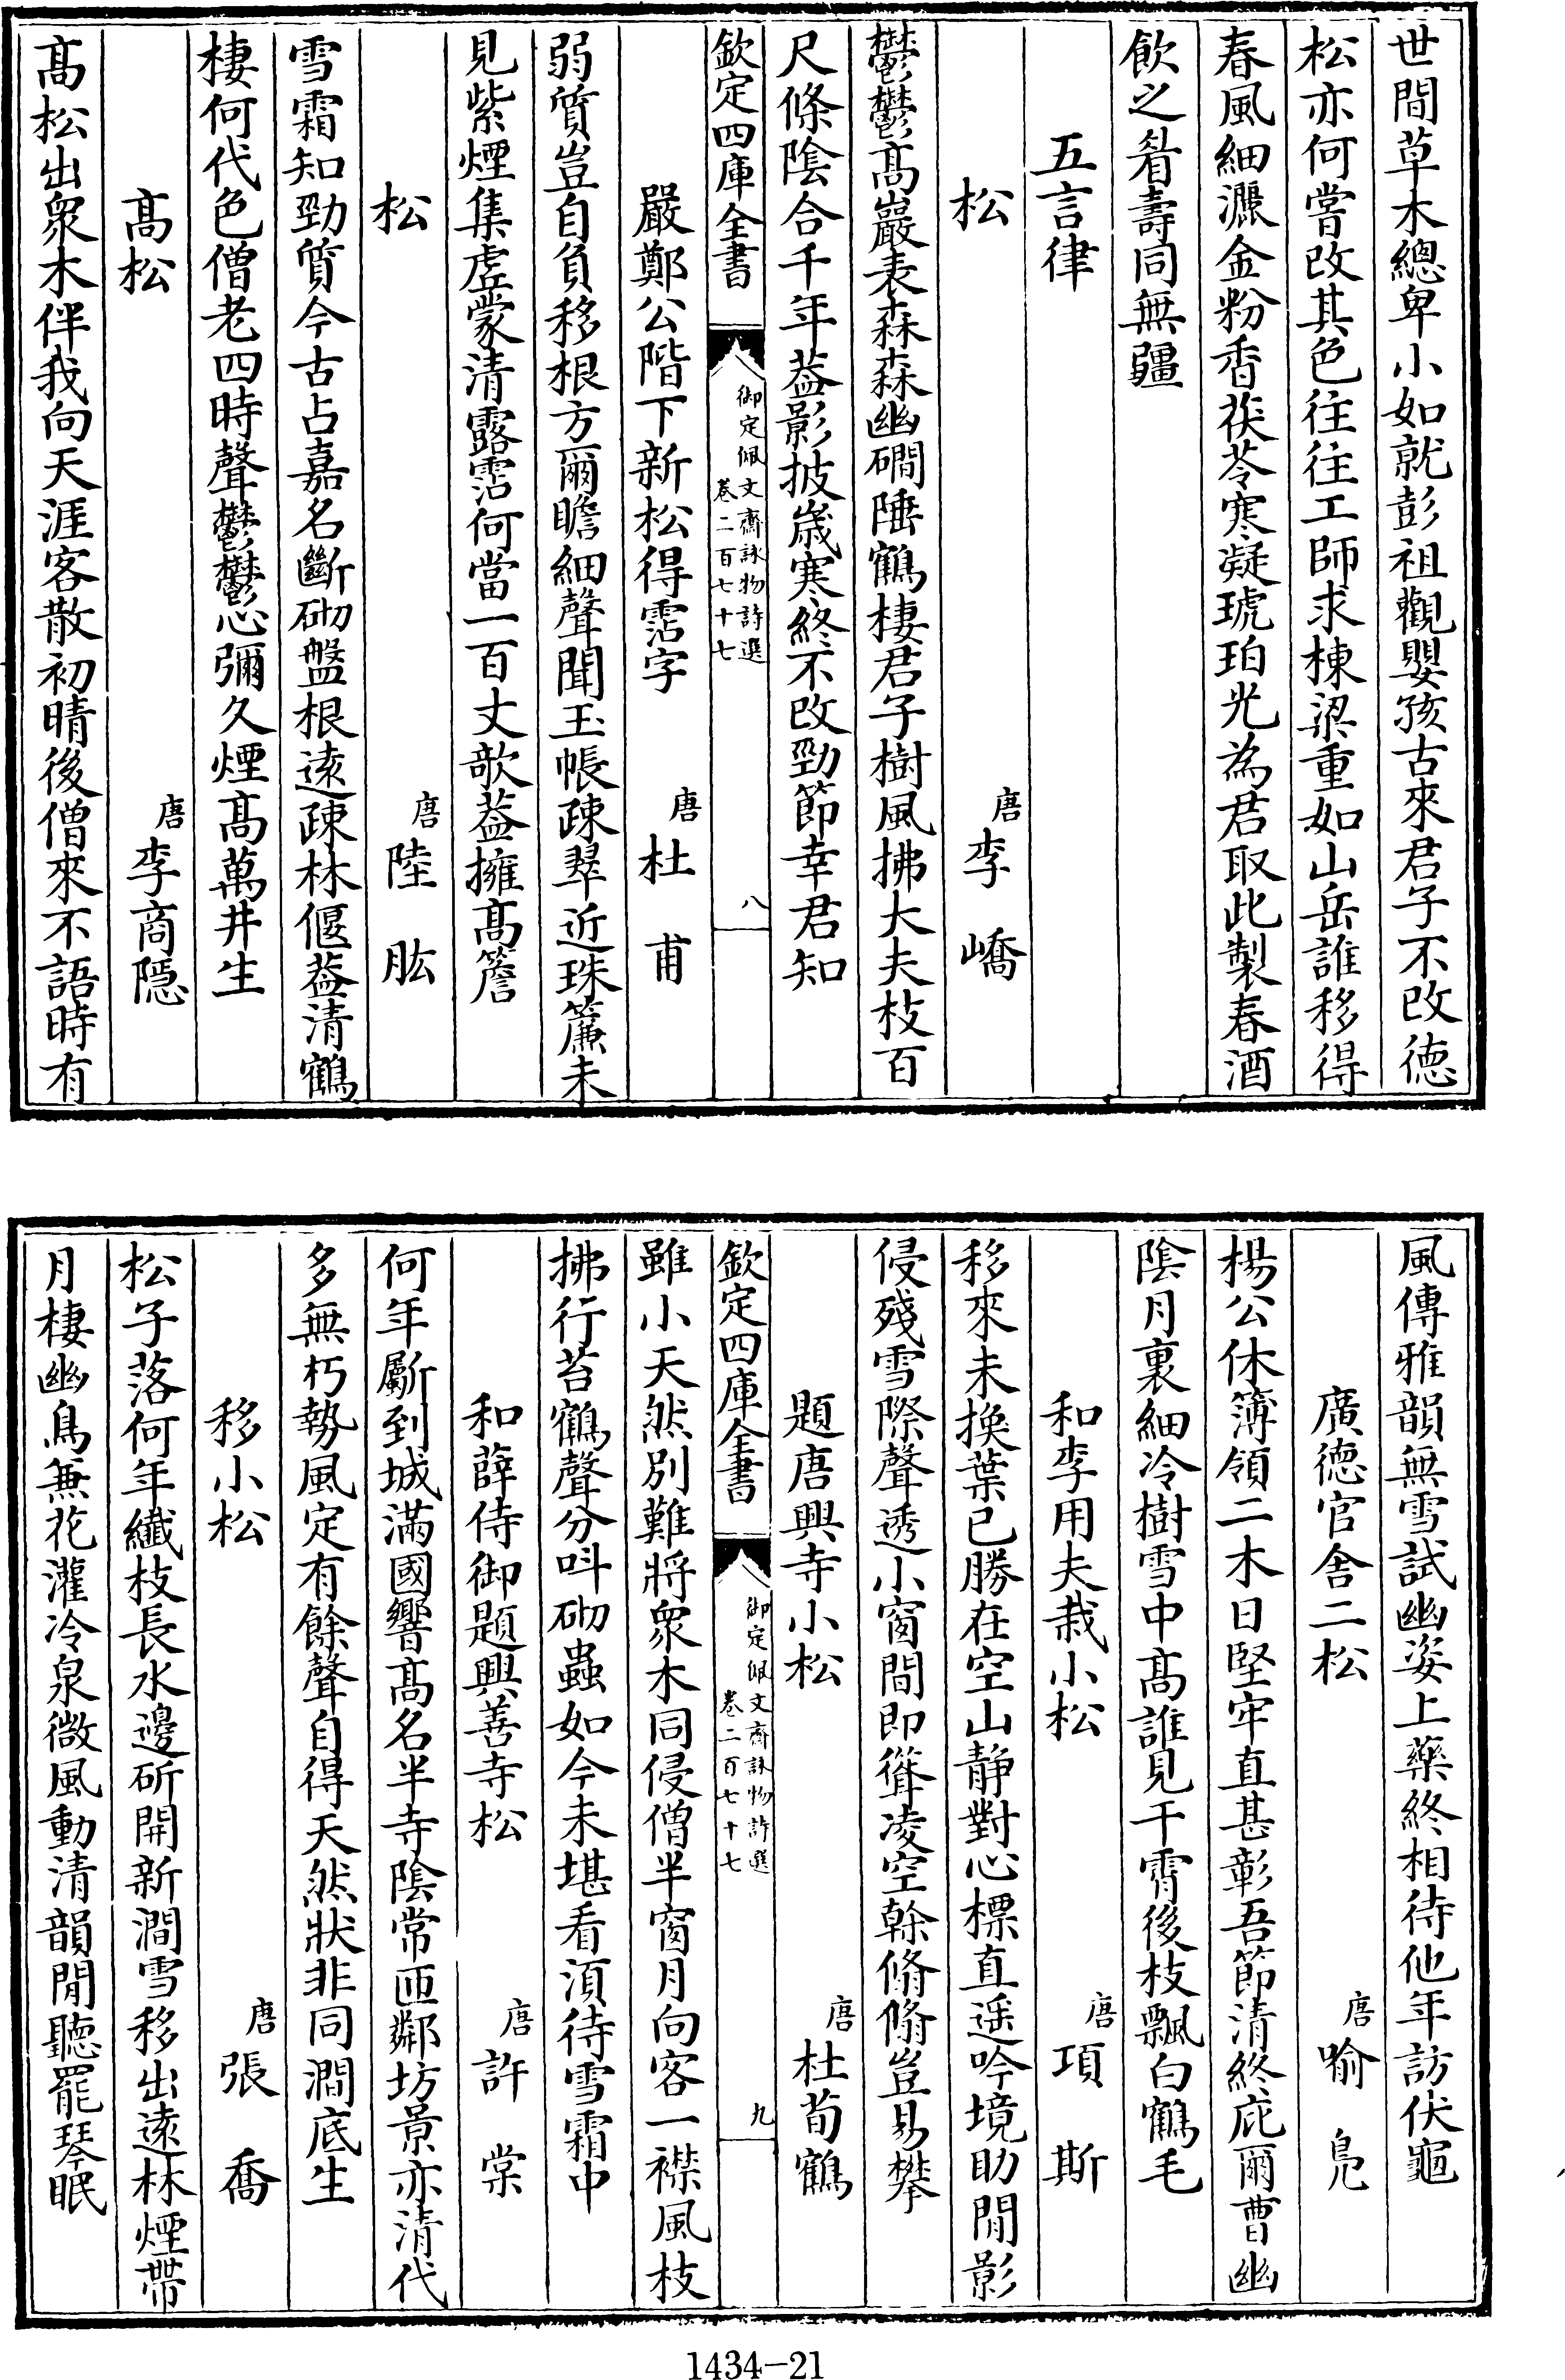 世間草木總卑小如就彭祖觀嬰孩古來君子不改德
松亦何嘗改其色往往工師求棟梁重如山岳誰移得
春風細灑金粉香茯苓寒凝琥珀光為君取此製春酒
飲之眉壽同無疆
五言律
松 唐李嶠
鬱鬱高巖表森森幽磵陲鶴棲君子樹風拂大夫枝百
尺條陰合千年葢影披歲寒終不改勁節幸君知
欽定四庫全書 御定佩文齋詠物詩選 卷二百七十七 八
嚴鄭公階下新松得霑字 唐杜甫
弱質豈自負移根方爾瞻細聲聞玉帳疎翠近珠簾未
見紫煙集虛蒙清露霑何當一百丈欹葢擁高簷
松 唐陸肱
雪霜知勁質今古占嘉名斷砌盤根遠疎林偃葢清鶴
棲何代色僧老四時聲鬱鬱心彌久煙高萬井生
高松 唐李商隱
高松出衆木伴我向天涯客散初晴後僧來不語時有
風傳雅韻無雪試幽姿上藥終相待他年訪伏龜
廣德官舍二松 唐喻鳧
楊公休簿領二木日堅牢直甚彰吾節清終庇爾曹幽
陰月裏細冷樹雪中高誰見干霄後枝飄白鶴毛
和李用夫栽小松 唐項斯
移來未換葉已勝在空山静對心標直遥吟境助閒影
侵殘雪際聲透小窗間即聳凌空榦翛翛豈易攀
題唐興寺小松 唐杜荀鶴
欽定四庫全書 御定佩文齋詠物詩選 卷二百七十七 九
雖小天然別難將衆木同侵僧半窗月向客一襟風枝
拂行苔鶴聲分呌砌蟲如今未堪看湏待雪霜中
和薛侍御題興善寺松 唐許棠
何年斸到城滿國響高名半寺陰常匝鄰坊景亦清代
多無朽勢風定有餘聲自得天然狀非同澗底生
移小松 唐張喬
松子落何年纖枝長水邊斫開新澗雪移出遠林煙帶
月棲幽鳥兼花灌冷泉微風動清韻閒聽罷琴眠
1434-21